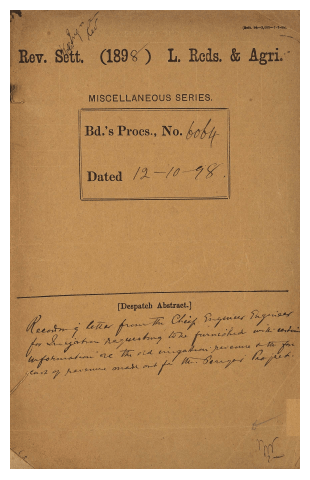 Rev. Sett. (1898) L. Rcds. & Agri.
MISCELLANEOUS SERIES.
Bd.'s Procs., No. 6064
Dated 12-10-98.
[Despatch Abstract.]
Recording letter from the Chief Engineer Engineer
for Irrigation requesting to be furnished with certain
information re the old irrigation revenue on the
of revenue made out for the Project.